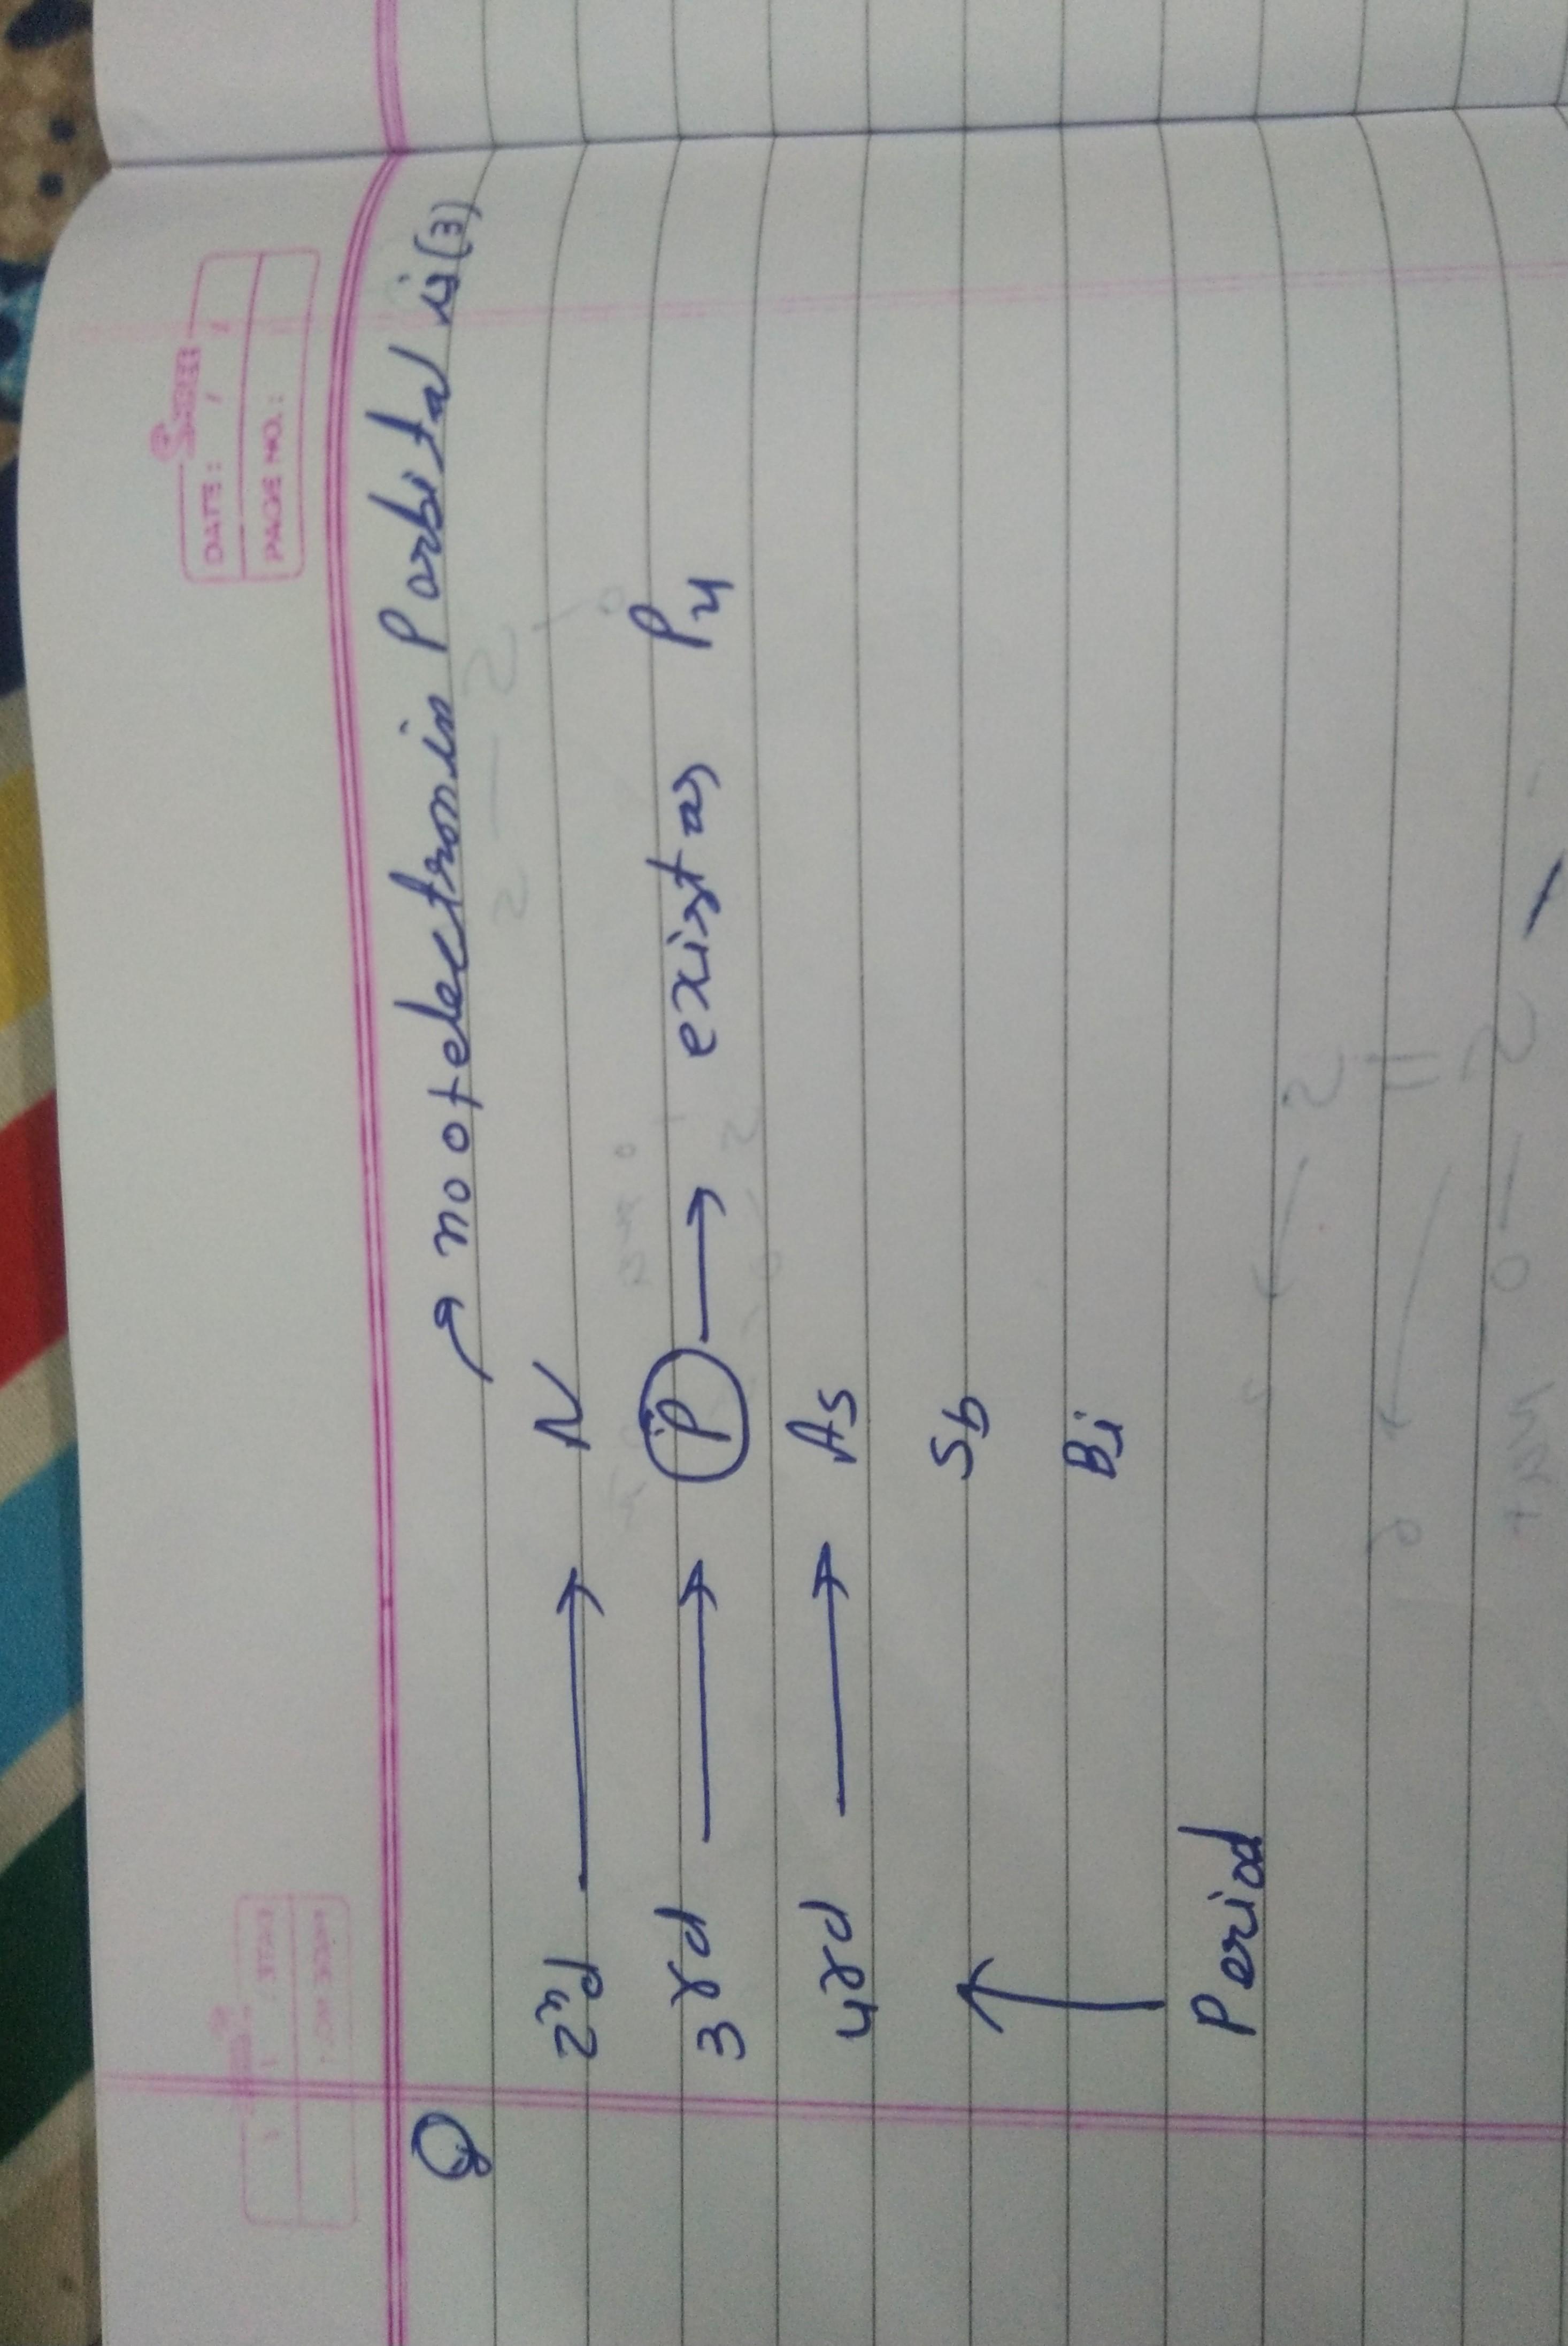 SHREE
DATE: / /
PAGE NO.:
Q → no of electron in P orbital is (3)
2nd → N
3rd → P → exist as P4
4rd → As
Sb
Bi
↑
Period